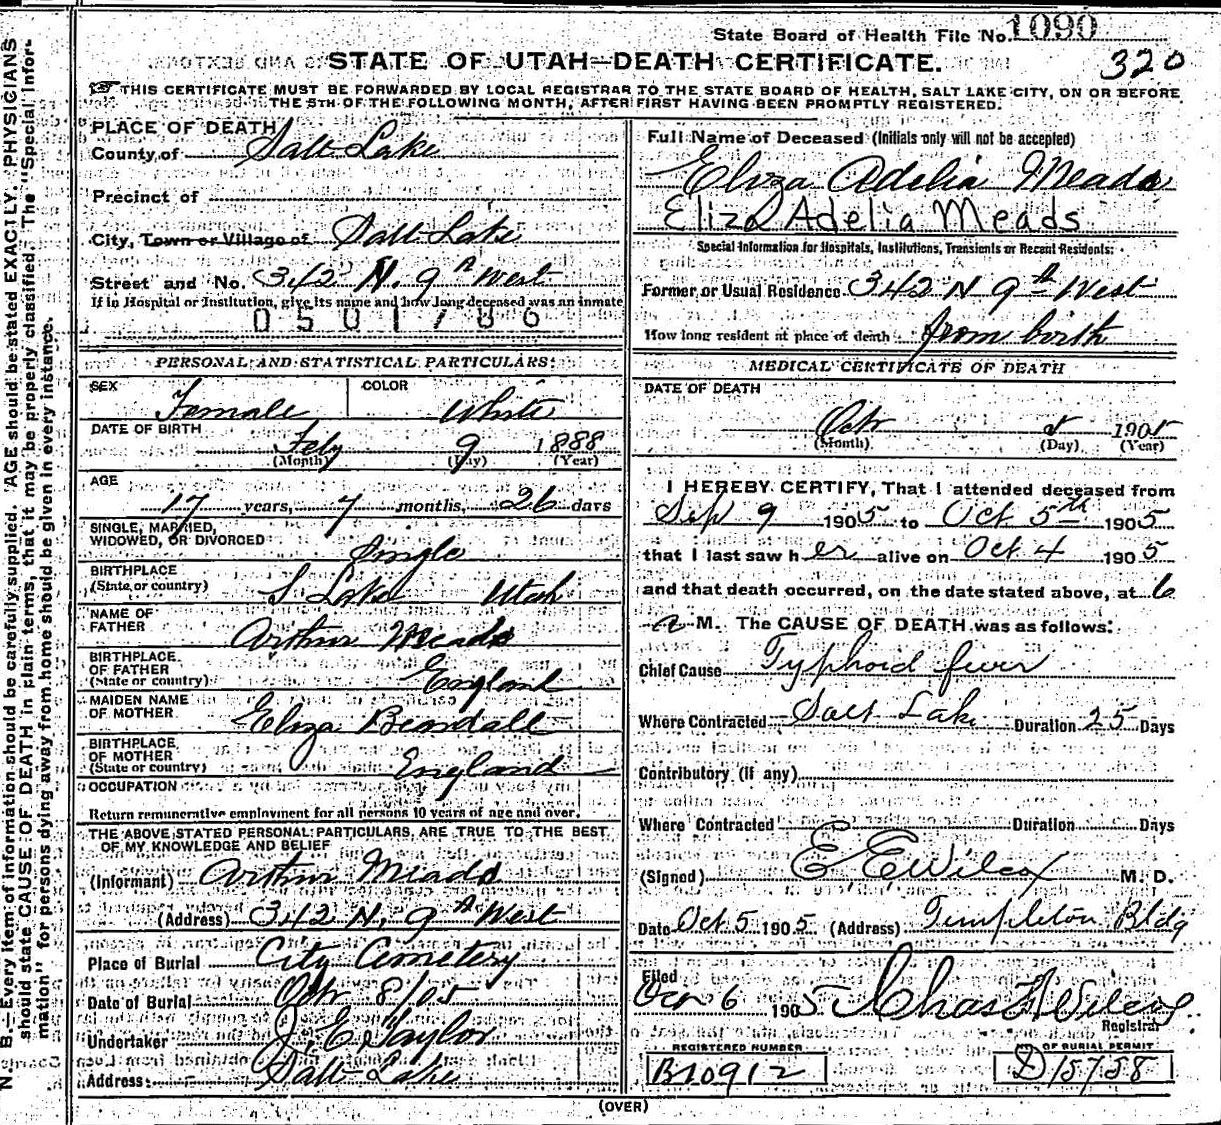 State Board of Health File No. 1090
320
STATE OF UTAH—DEATH CERTIFICATE.
THIS CERTIFICATE MUST BE FORWARDED BY LOCAL REGISTRAR TO THE STATE BOARD OF HEALTH, SALT LAKE CITY, ON OR BEFORE
THE 5TH OF THE FOLLOWING MONTH, AFTER FIRST HAVING BEEN PROMPTLY REGISTERED.
N B.—Every item of information should be carefully supplied. AGE should be stated EXACTLY. PHYSICIANS
should state CAUSE OF DEATH in plain terms, that it may be properly classified. The "Special Infor-
mation" for persons dying away from home should be given in every instance.
PLACE OF DEATH
County of Salt Lake
Precinct of
City, Town or Village of Salt Lake
Street and No. 342 N. 9th West
If in Hospital or Institution, give its name and how long deceased was an inmate
0501786
PERSONAL AND STATISTICAL PARTICULARS:
SEX Female COLOR White
DATE OF BIRTH
Feby 9 1888
(Month) (Day) (Year)
AGE
17 years, 7 months, 26 days
SINGLE, MARRIED,
WIDOWED, OR DIVORCED Single
BIRTHPLACE
(State or country) S. Lake Utah
NAME OF
FATHER Arthur Meads
BIRTHPLACE
OF FATHER
(State or country) England
MAIDEN NAME
OF MOTHER Eliza Beardall
BIRTHPLACE
OF MOTHER
(State or country) England
OCCUPATION
Return remunerative employment for all persons 10 years of age and over.
THE ABOVE STATED PERSONAL PARTICULARS ARE TRUE TO THE BEST
OF MY KNOWLEDGE AND BELIEF
(Informant) Arthur Meads
(Address) 342 N. 9th West
Place of Burial City Cemetery
Date of Burial Oct 8/05
Undertaker J. E. Taylor
Address: Salt Lake
Full Name of Deceased (Initials only will not be accepted)
Eliza Adelia Meads
Eliza Adelia Meads
Special Information for Hospitals, Institutions, Transients or Recent Residents:
Former or Usual Residence 342 N 9th West
How long resident at place of death from birth
MEDICAL CERTIFICATE OF DEATH
DATE OF DEATH
Oct 5 1905
(Month) (Day) (Year)
I HEREBY CERTIFY, That I attended deceased from
Sep 9 1905 to Oct 5th 1905
that I last saw her alive on Oct 4 1905
and that death occurred, on the date stated above, at 6
a M. The CAUSE OF DEATH was as follows:
Chief Cause Typhoid fever
Where Contracted Salt Lake Duration 25 Days
Contributory (if any)
Where Contracted Duration Days
(Signed) E E Wilcox M. D.
Date Oct 5 1905 (Address) Templeton Bldg
Filed
Oct 6 1905 Chas F Wilcox
Registrar
REGISTERED NUMBER
B10912
NO. OF BURIAL PERMIT
D15758
(OVER)